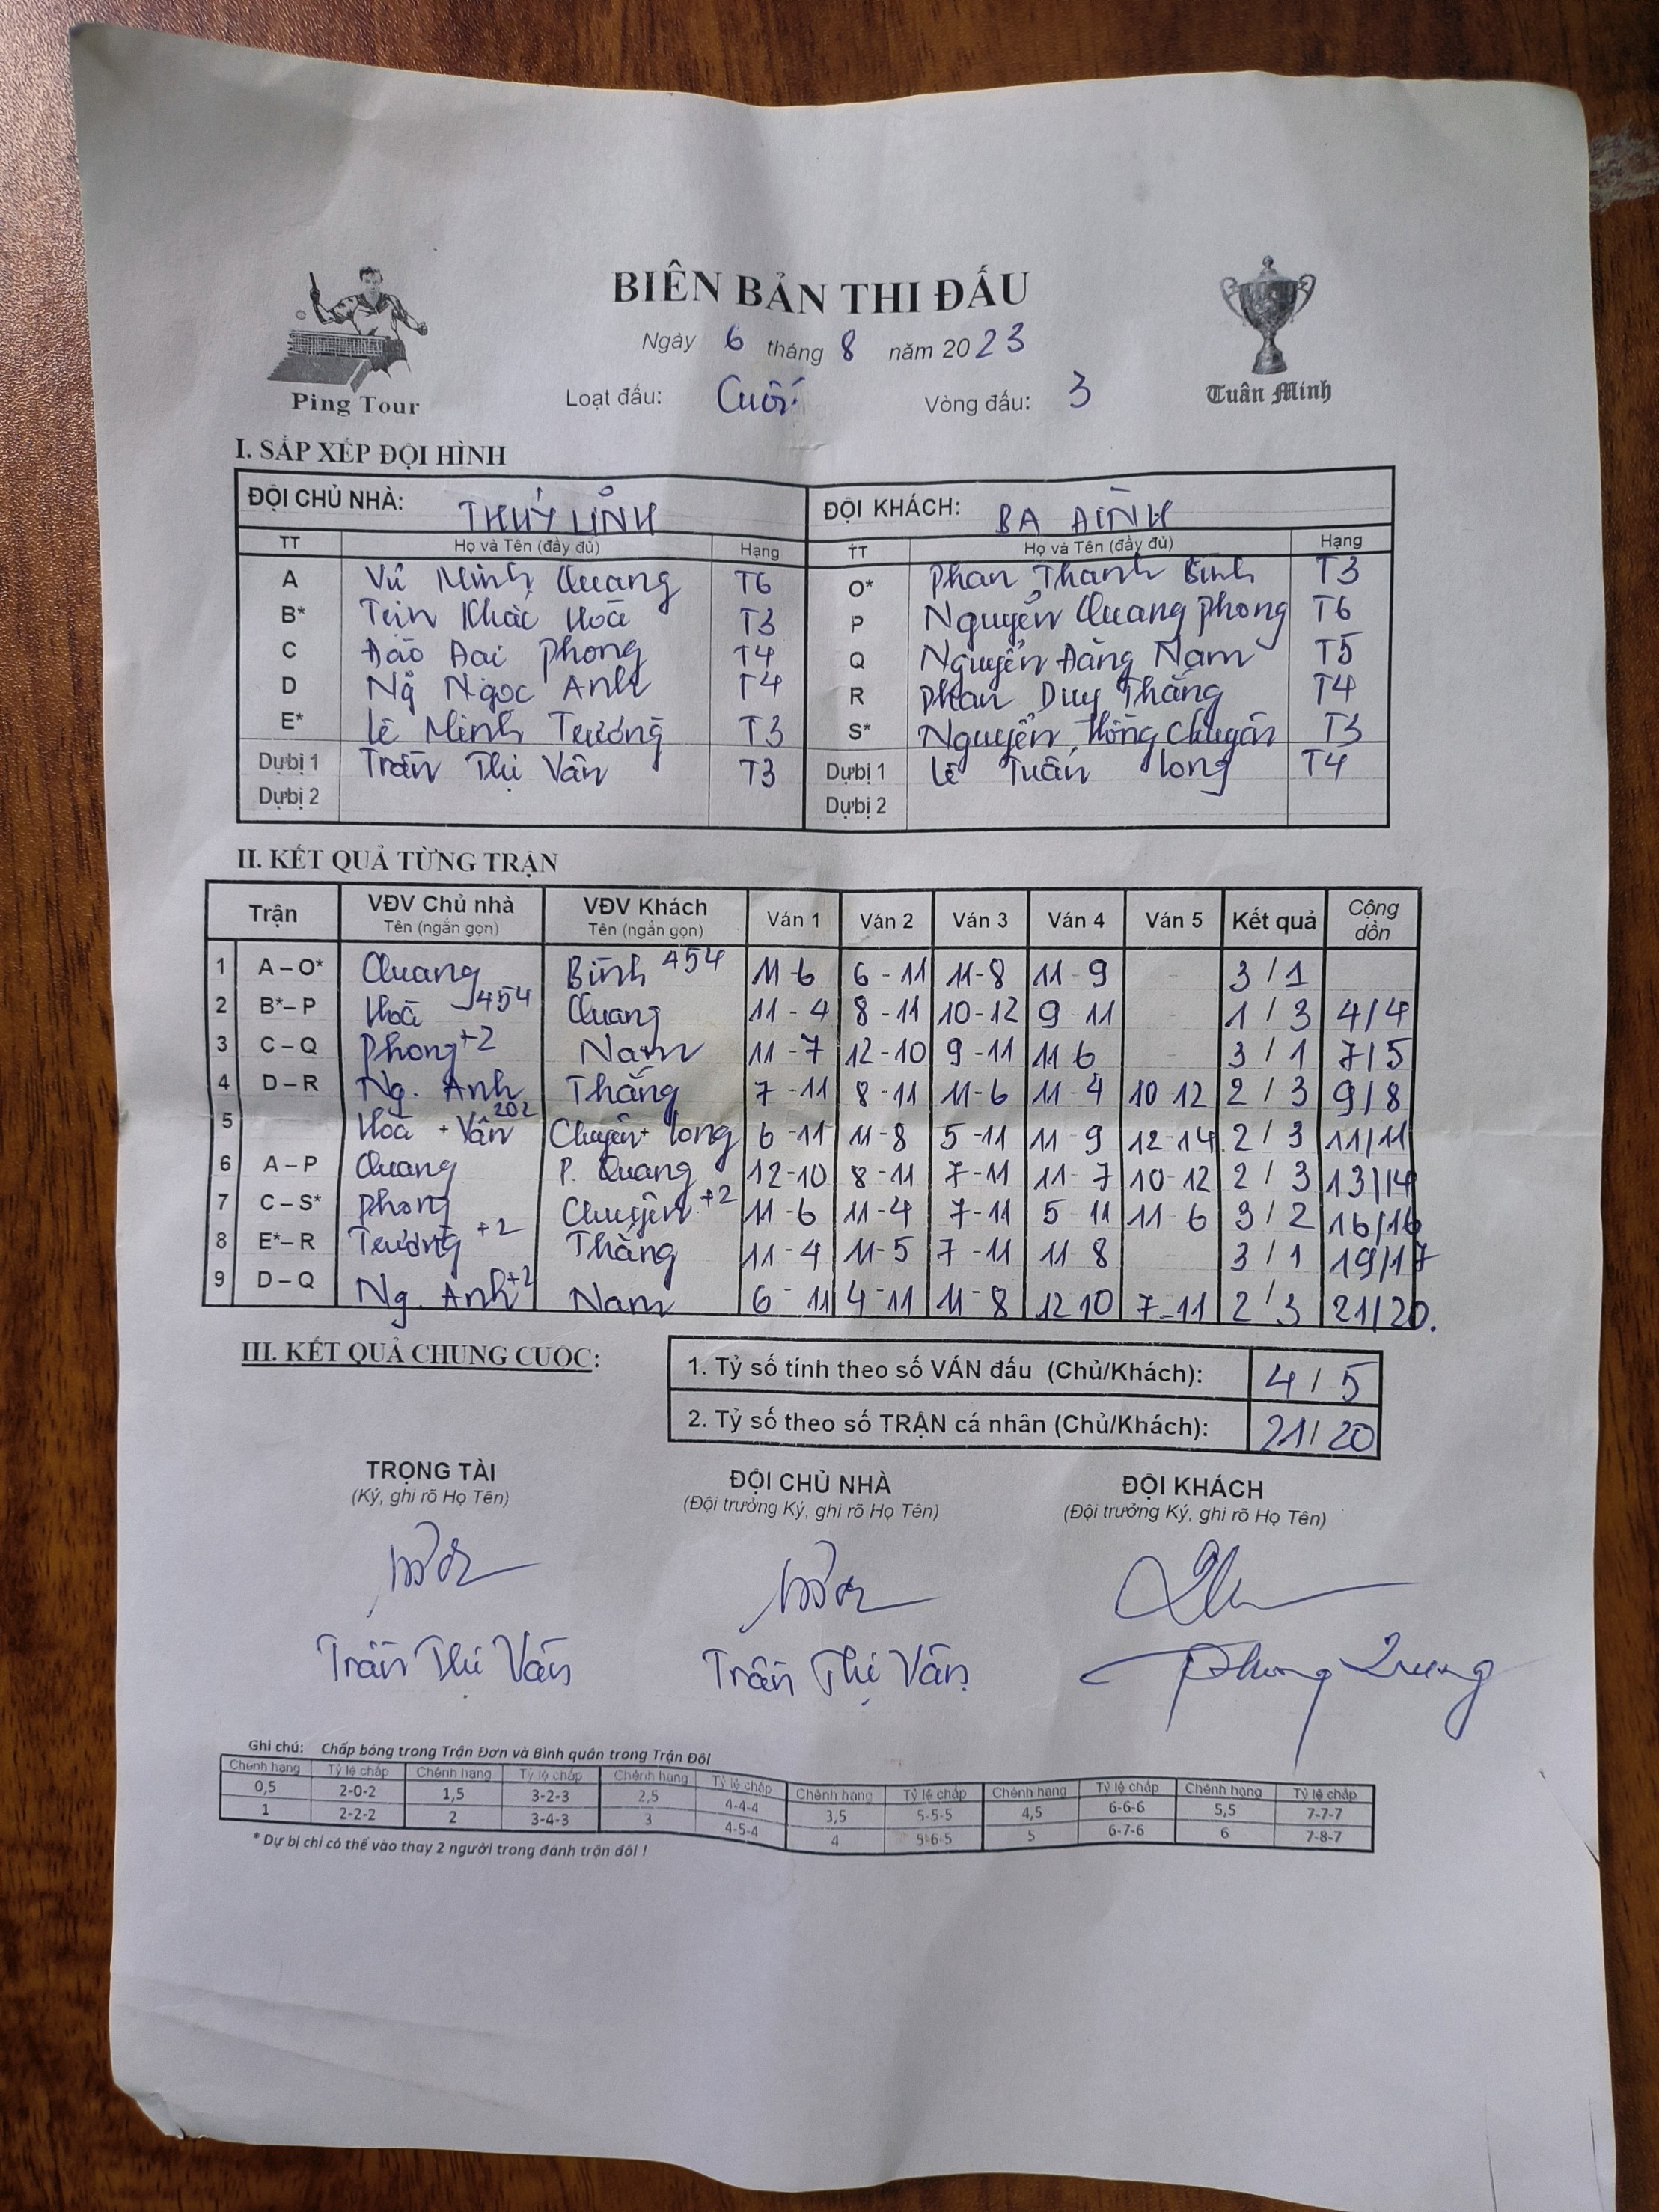 BIÊN BẢN THI ĐẤU
Ngày 6 tháng 8 năm 2023
Ping Tour
Loạt đấu: Cuối Vòng đấu: 3
Tuấn Minh
I. SẮP XẾP ĐỘI HÌNH
ĐỘI CHỦ NHÀ: THUÝ LĨNH ĐỘI KHÁCH: BA ĐÌNH
TT Họ và Tên (đầy đủ) Hạng TT Họ và Tên (đầy đủ) Hạng
A Vũ Minh Quang T6 O* Phan Thanh Bình T3
B* Khắc Hoà T3 P Nguyễn Quang Phong T6
C Đào Đại Phong T4 Q Nguyễn Đăng Nam T5
D Ng Ngọc Anh T4 R Phan Duy Thắng T4
E* Lê Minh Trường T3 S* Nguyễn Hồng Chuyên T3
Dự bị 1 Trần Thị Vân T3 Dự bị 1 Lê Tuấn Long T4
Dự bị 2 Dự bị 2
II. KẾT QUẢ TỪNG TRẬN
Trận VĐV Chủ nhà Tên (ngắn gọn) VĐV Khách Tên (ngắn gọn) Ván 1 Ván 2 Ván 3 Ván 4 Ván 5 Kết quả Cộng dồn
1 A – O* Quang Bình 454 11-6 6-11 11-8 11-9 - 3/1
2 B* – P Hoà 454 Quang 11-4 8-11 10-12 9-11 - 1/3 4/4
3 C – Q Phong +2 Nam 11-7 12-10 9-11 11 6 - 3/1 7/5
4 D – R Ng. Anh Thắng 7-11 8-11 11-6 11-4 10 12 2/3 9/8
5 Hoà + Vân 202 Chuyên + Long 6-11 11-8 5-11 11-9 12-14 2/3 11/11
6 A – P Quang P. Quang 12-10 8-11 7-11 11-7 10-12 2/3 13/14
7 C – S* Phong Chuyên +2 11-6 11-4 7-11 5-11 11-6 3/2 16/16
8 E* – R Trường +2 Thắng 11-4 11-5 7-11 11 8 3/1 19/17
9 D – Q Ng. Anh +2 Nam 6-11 4-11 11-8 12 10 7-11 2/3 21/20.
III. KẾT QUẢ CHUNG CUỘC:
1. Tỷ số tính theo số VÁN đấu (Chủ/Khách): 4/5
2. Tỷ số theo số TRẬN cá nhân (Chủ/Khách): 21/20
TRỌNG TÀI ĐỘI CHỦ NHÀ ĐỘI KHÁCH
(Ký, ghi rõ Họ Tên) (Đội trưởng Ký, ghi rõ Họ Tên) (Đội trưởng Ký, ghi rõ Họ Tên)
Trần Thị Vân Trần Thị Vân
Ghi chú: Chấp bóng trong Trận Đơn và Bình quân trong Trận Đôi
Chênh hạng Tỷ lệ chấp Chênh hạng Tỷ lệ chấp Chênh hạng Tỷ lệ chấp Chênh hạng Tỷ lệ chấp Chênh hạng Tỷ lệ chấp Chênh hạng Tỷ lệ chấp
0,5 2-0-2 1,5 3-2-3 2,5 4-4-4 3,5 5-5-5 4,5 6-6-6 5,5 7-7-7
1 2-2-2 2 3-4-3 3 4-5-4 4 5-6-5 5 6-7-6 6 7-8-7
* Dự bị chỉ có thể vào thay 2 người trong đánh trận đôi !